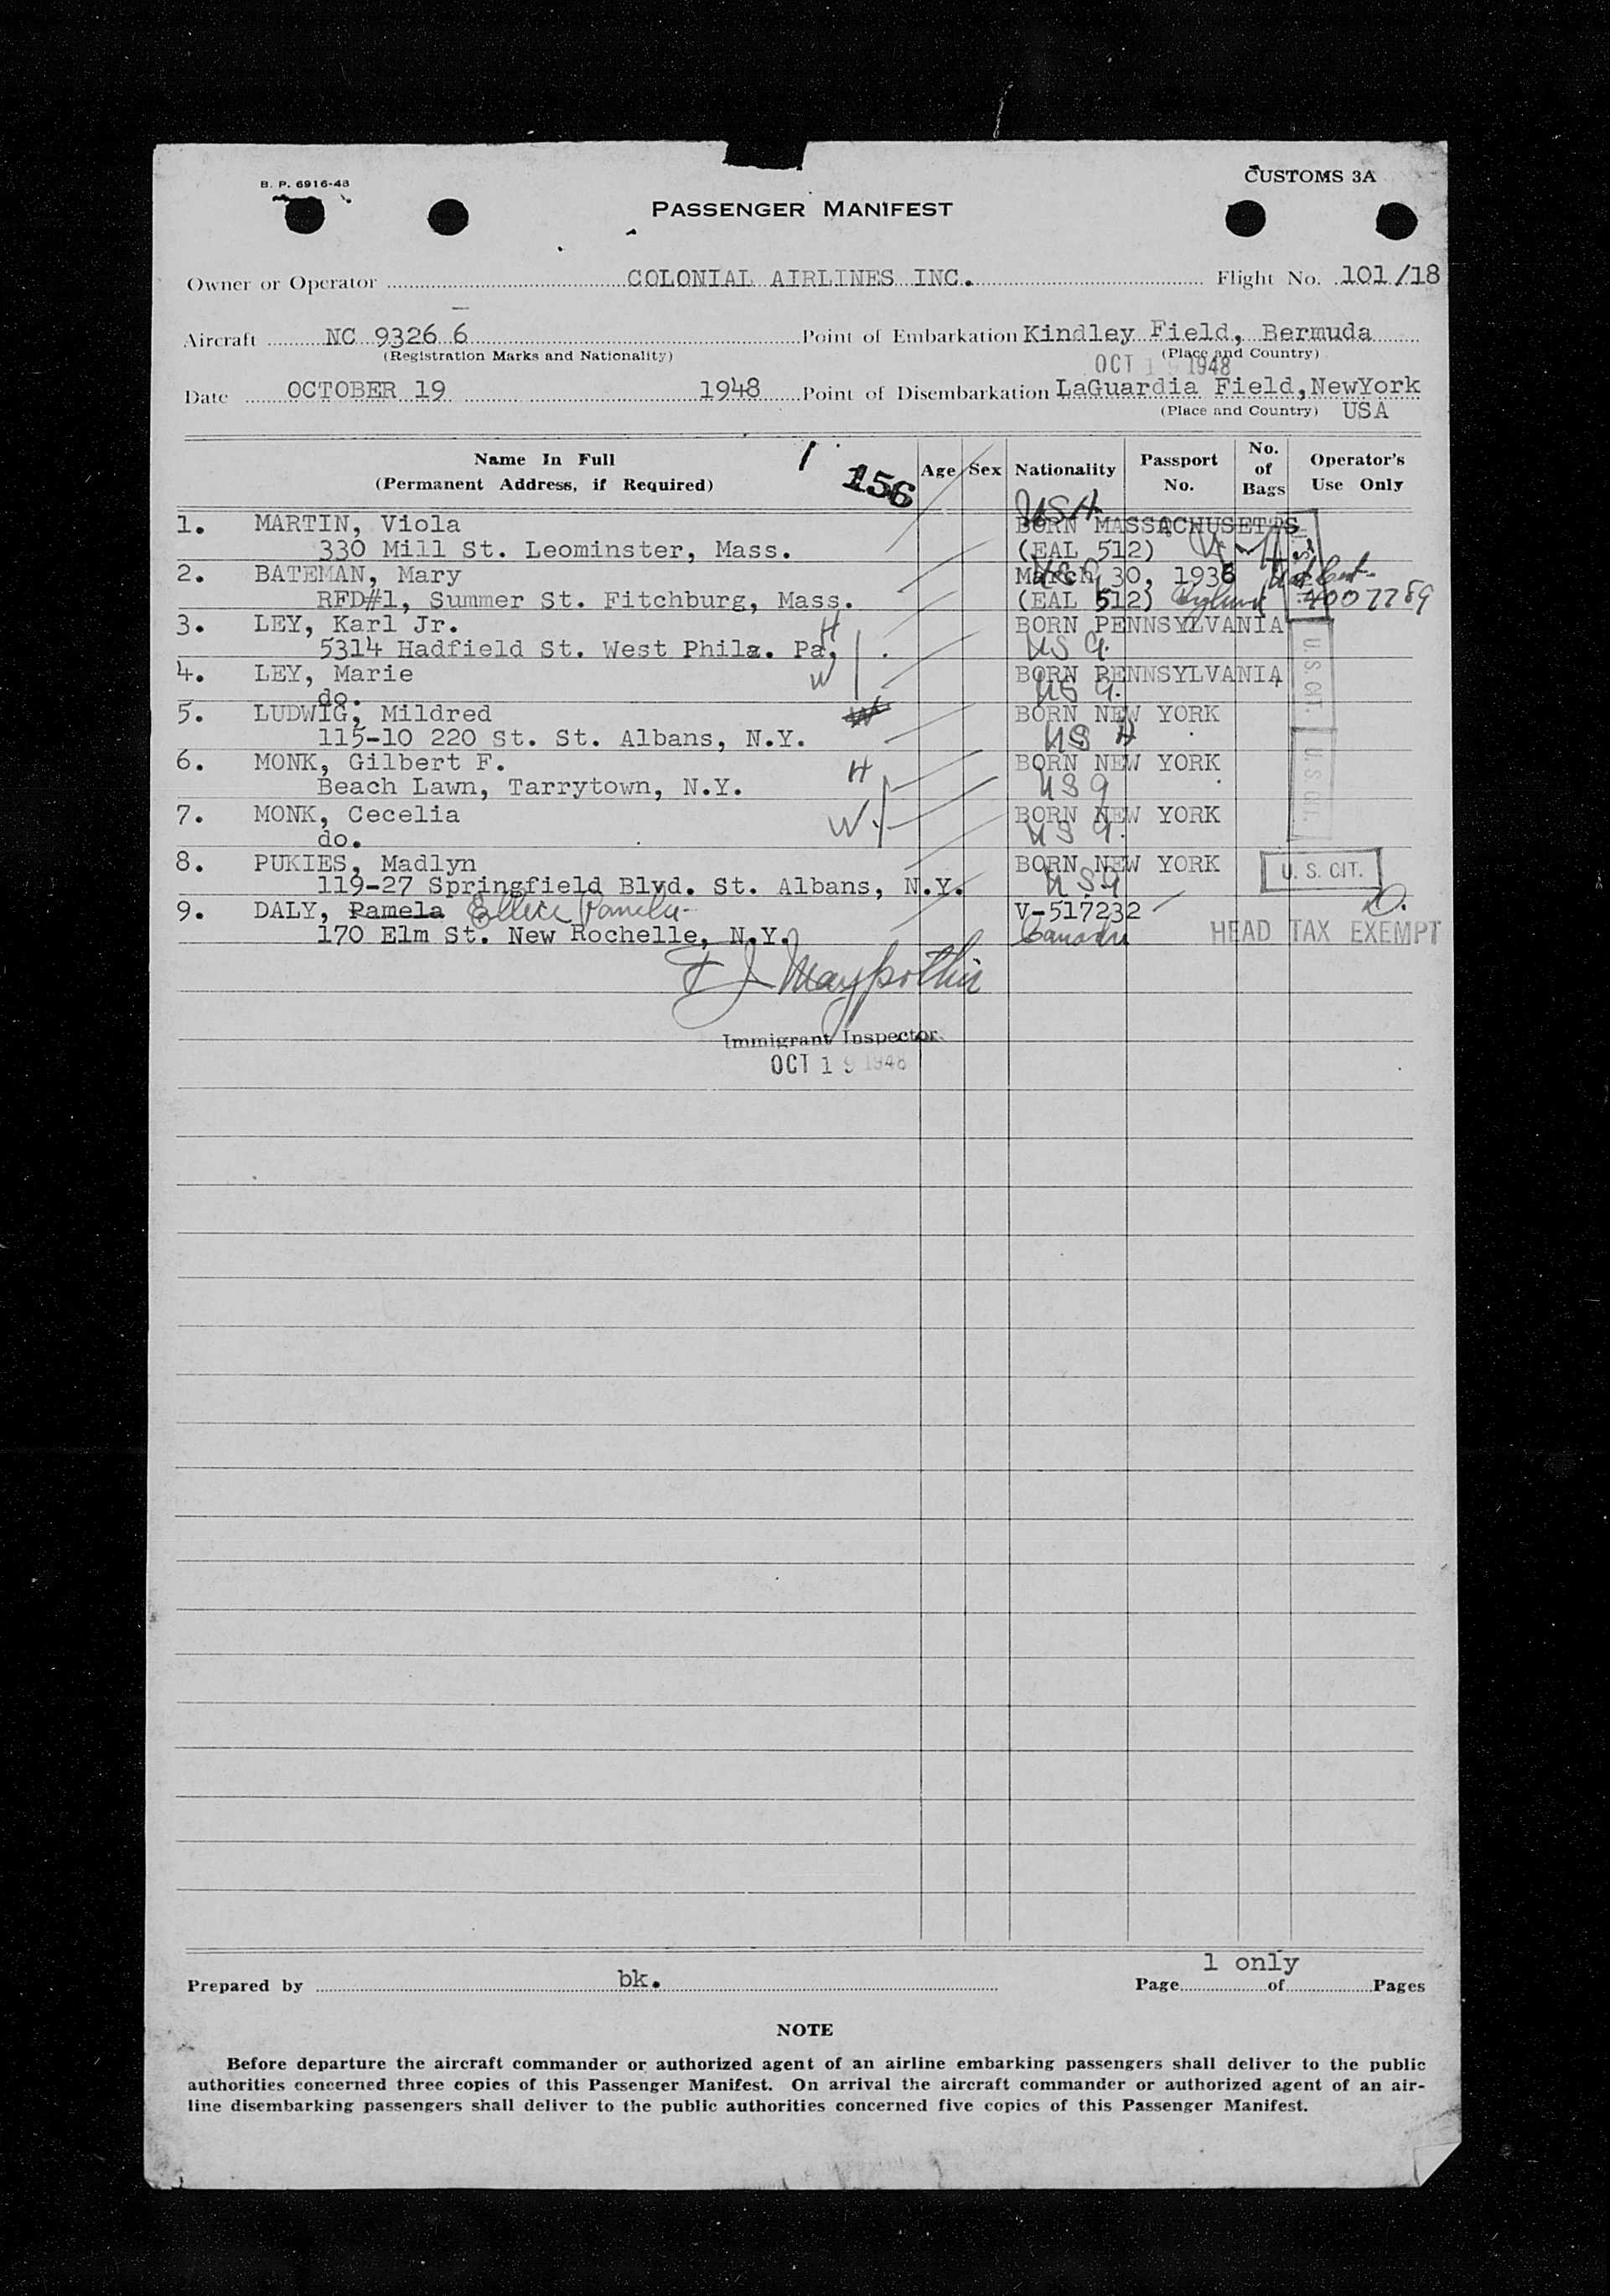 B. P. 6916-48
CUSTOMS 3A
PASSENGER MANIFEST
Owner or Operator COLONIAL AIRLINES INC. Flight No. 101/18
Aircraft NC 9326 6 Point of Embarkation Kindley Field, Bermuda
(Registration Marks and Nationality) (Place and Country)
OCT 19 1948
Date OCTOBER 19 1948 Point of Disembarkation LaGuardia Field, NewYork
(Place and Country) USA
Name In Full (Permanent Address, if Required) 1 156 Age Sex Nationality Passport No. No. of Bags Operator's Use Only
USA
1. MARTIN, Viola BORN MASSACHUSETTS
330 Mill St. Leominster, Mass. (EAL 512)
2. BATEMAN, Mary March 30, 1936
RFD#1, Summer St. Fitchburg, Mass. (EAL 512) 4007789
3. LEY, Karl Jr. H BORN PENNSYLVANIA
5314 Hadfield St. West Phila. Pa. USA
4. LEY, Marie W BORN PENNSYLVANIA
do. USA U.S. CIT.
5. LUDWIG, Mildred W BORN NEW YORK
115-10 220 St. St. Albans, N.Y. USA
6. MONK, Gilbert F. H BORN NEW YORK
Beach Lawn, Tarrytown, N.Y. USA U.S. CIT.
7. MONK, Cecelia W BORN NEW YORK
do. USA
8. PUKIES, Madlyn BORN NEW YORK U. S. CIT.
119-27 Springfield Blvd. St. Albans, N.Y. USA
9. DALY, Pamela Ellice Pamela V-517232
170 Elm St. New Rochelle, N.Y. Canada HEAD TAX EXEMPT
Immigrant Inspector
OCT 19 1948
1 only
Prepared by bk. Page of Pages
NOTE
Before departure the aircraft commander or authorized agent of an airline embarking passengers shall deliver to the public
authorities concerned three copies of this Passenger Manifest. On arrival the aircraft commander or authorized agent of an air-
line disembarking passengers shall deliver to the public authorities concerned five copies of this Passenger Manifest.